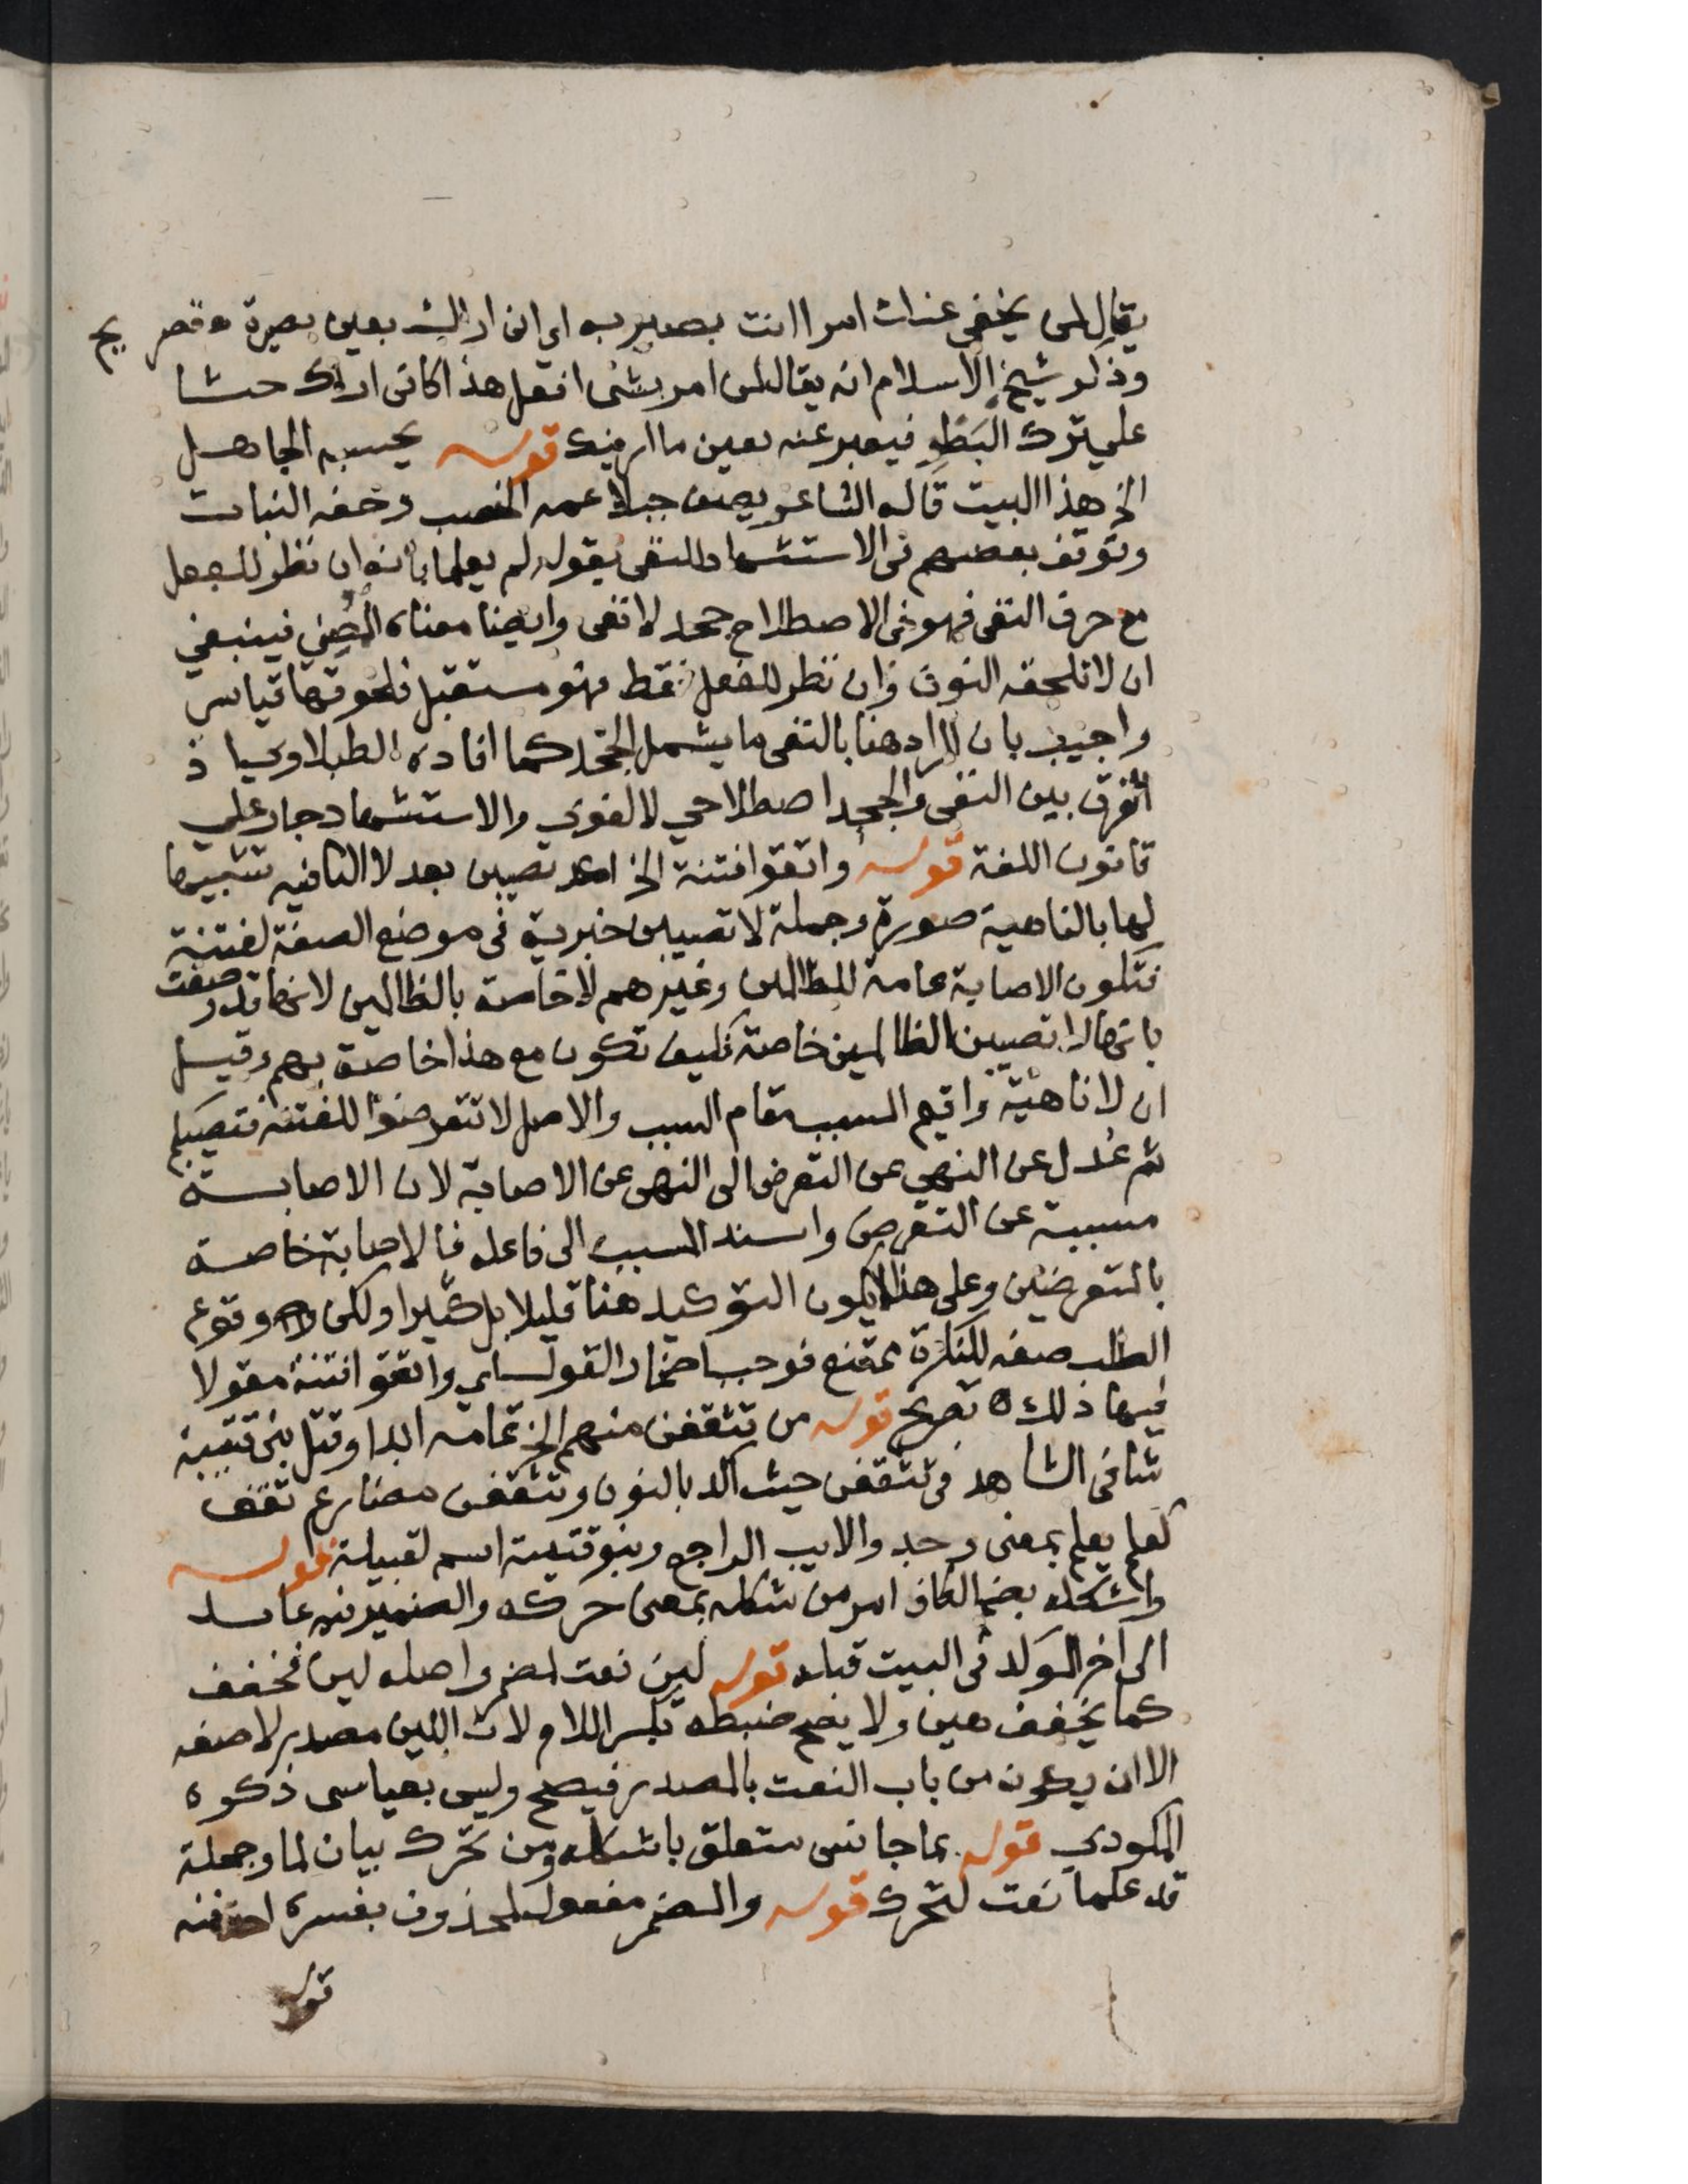 يقال لمن يخفى عنك امرا انت بصير به اي اني اراك بعين بصيرة ه تصريح
وذكر شيخ الاسلام انه يقال لمن امر بشي افعل هذا كاني اراك حثا
على ترك البطؤ فيعبر عنه بعين ما ارينك قوله يحسبه الجاهل
الخ هذا البيت قاله الشاعر يصف جبلا عمه الخصب وحفه النبات
وتوقف بعضهم في الاستشهاد للنفي بقوله لم يعلما بانه ان نظر للفعل
مع حرف النفي فهو في الاصطلاح جحد لا نفي وايضا معناه المضي فينبغي
ان لا تلحقه النون وان نظر للفعل فقط فهو مستقبل فلحوقها قياس
واجيب بان المراد هنا بالنفي ما يشمل الجحد كما افاده الطبلاوي اذ
الفرق بين النفي والجحد اصطلاحي لا لغوي والاستشهاد جار على
قانون اللغة قوله واتقوا فتنة الخ اكد تصيبن بعد لا النافيه تشبيها
لها بالناهية صورة وجملة لا تصيبن خبرية في موضع الصفة لفتنة
فتكون الاصابة عامة للظالمين وغيرهم لا خاصة بالظالمين لانها قد وصفت
بانها لا تصيبن الظالمين خاصة فكيف تكون مع هذا خاصة بهم وقيل
ان لا ناهية واقيم المسبب مقام السبب والاصل لا تتعرضوا للفتنة فتصيبكم
ثم عدل عن النهي عن التعرض الى النهي عن الاصابة لان الاصابة
مسببة عن التعرض واسند المسبب الى فاعله فالاصابة خاصة
بالمتعرضين وعلى هذا لا يكون التوكيد هنا قليلا بل كثيرا ولكن وقوع
الطلب صفة للنكرة ممتنع فوجب اضمار القول اي واتقوا فتنة مقولا
فيها ذلك ه تصريح قوله من تثقفن منهم الخ تمامه ابدا وقتل بني قتيبة
شافي الشاهد في تثقفن حيث اكد بالنون وتثقفن مضارع ثقف
كعلم يعلم بمعنى وجد والايب الراجع وبنو قتيبة اسم لقبيلة قوله
واشكله بضم الكاف امر من شكله بمعنى حركه والضمير فيه عائد
الى اخر المولد في البيت قبله قوله لين نعت لمضمر واصله لين فخفف
كما يخفف هين ولا يصح ضبطه بكسر اللام لان اللين مصدر لا صفه
الا ان يكون من باب النعت بالمصدر فيصح وليس بقياسي ذكره
المكودي قوله بما جانس متعلق باشكله ومن تحرك بيان لما وجملة
قد علما نعت لتحرك قوله والمضمر مفعول لمحذوف يفسره احذفنه
قوله